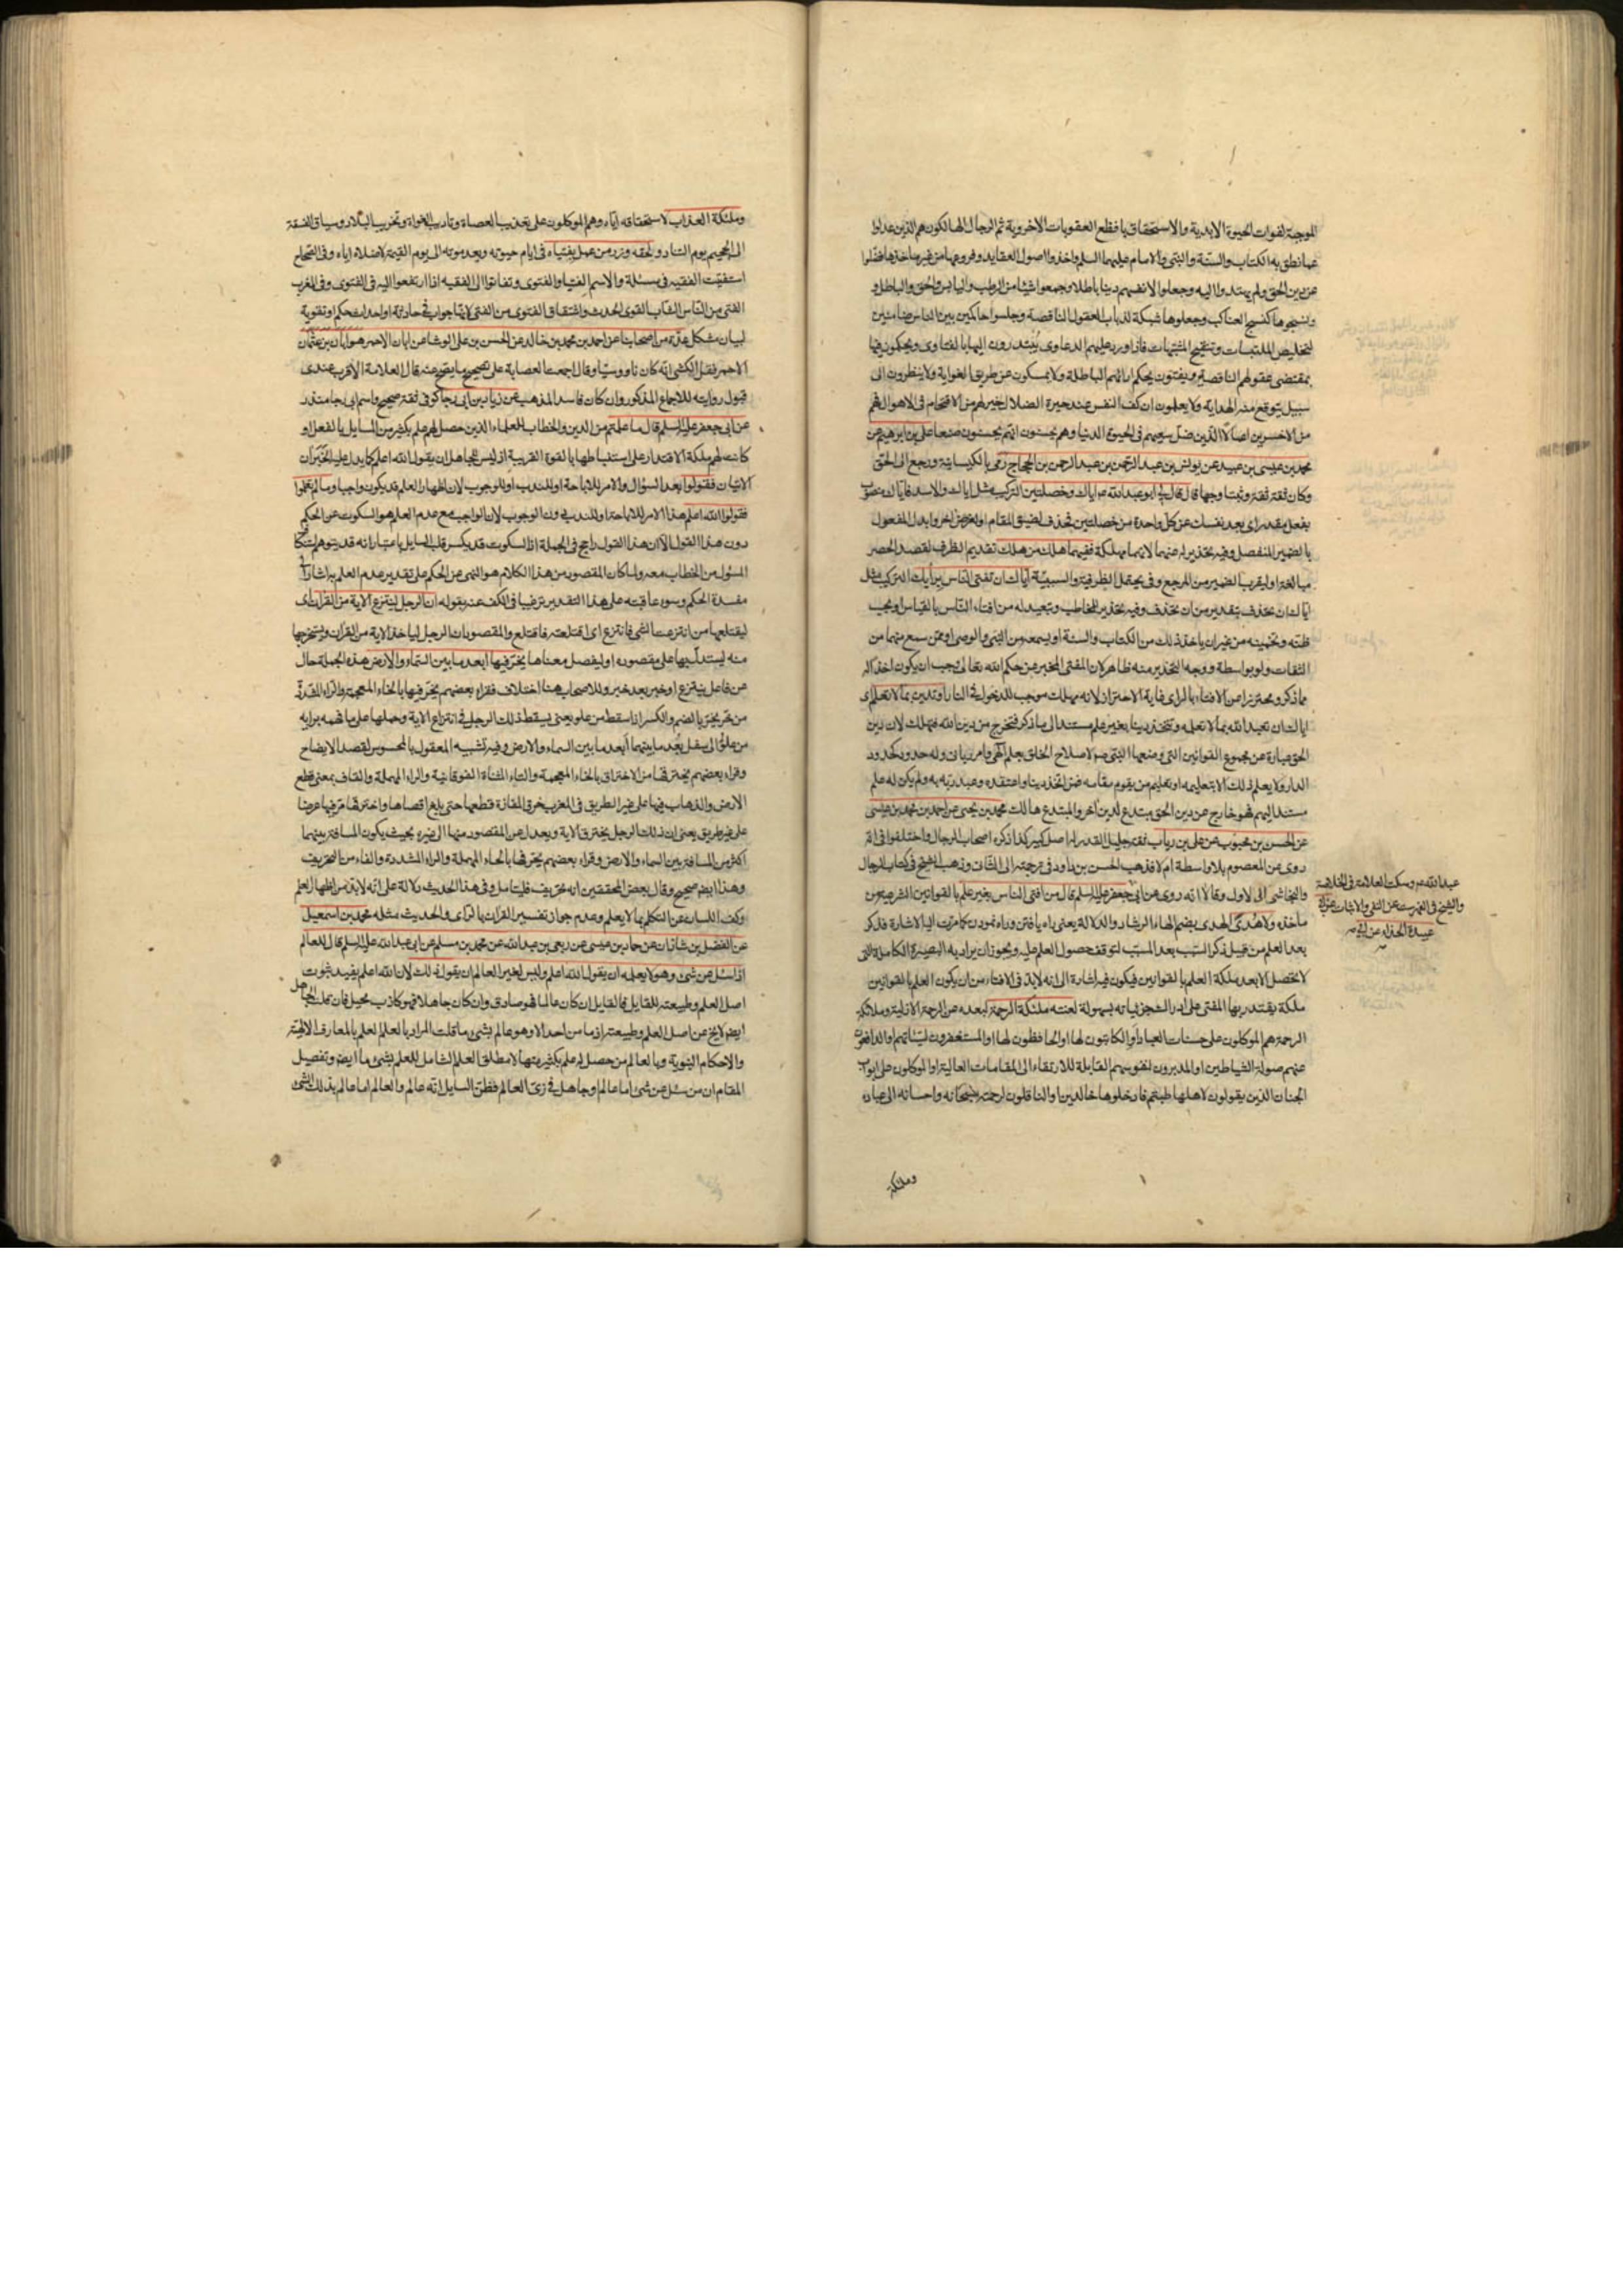 الموجبة لفوات الحيوة الابدية والاستحقاق بافظع العقوبات الاخروية ثم الرجال الهالكون هم الذين عدلوا
عما نطق به الكتاب والسنة والنبى والامام عليهما السلم واخذوا اصول العقايد وفروعها من غير ماخذها فضلوا
عن دين الحق ولم يهتدوا اليه وجعلوا لانفسهم دينا باطلا وجمعوا شيئا من الرطب واليابس والحق والباطل و
ونسجوها كنسج العناكب وجعلوها شبكة لذباب العقول الناقصة وجلسوا حاكمين بين الناس ضامنين
لتخليص الملتبسات وتنقيح المشتبهات فاذا ورد عليهم الدعاوى يبتدرون اليها بالفتاوى ويحكمون فيها
بمقتضى عقولهم الناقصة ويفتون بحكم ارائهم الباطلة ولا يمسكون عن طريق الغواية ولا ينظرون الى
سبيل يتوقع منه الهداية ولا يعلمون ان كف النفس عند حيرة الضلال خير لهم من الاقتحام فى الاهوال فهم
من الاخسرين اعمالا الذين ضل سعيهم فى الحيوة الدنيا وهم يحسبون انهم يحسنون صنعا على بن ابرهيم عن
محمد بن عيسى بن عبيد عن يونس بن عبد الرحمن عن عبد الرحمن بن الحجاج رمى بالكيسانية ورجع الى الحق
وكان ثقة ثقة وثبتا وجها قال قال لى ابو عبد الله ع اياك وخصلتين التركيب مثل اياك والاسد فاياك منصوب
بفعل مقدر اى بعد نفسك عن كل واحدة من خصلتين فحذف لضيق المقام او لغرض اخر وابدل المفعول
بالضمير المنفصل وفيه تحذير له عنهما لانهما مهلكة ففيهما هلك من هلك تقديم الظرف لقصد الحصر
مبالغة او ليقرب الضمير من المرجع وفى يحتمل الظرفية والسببية اياك ان تفتى الناس برأيك التركيب مثل
اياك ان تحذف بتقدير من ان تحذف وفيه تحذير للمخاطب وتبعيد له من افتاء الناس بالقياس او بحسب
ظنه وتخمينه من غير ان ياخذ ذلك من الكتاب والسنة او يسمعه من النبى والوصى او ممن سمع منهما من
الثقات ولو بواسطة ووجه التحذير منه ظاهر لان المفتى المخبر عن حكم الله تعالى يجب ان يكون اخذا له
مما ذكر ومحترزا عن الافتاء بالراى غاية الاحتراز لانه مهلك موجب للدخول فى النار او تدين بما لا تعلم اى
اياك ان تعبد الله بما لا تعلمه وتتخذه دينا بغير علم مستند الى ما ذكر فتخرج من دين الله فتهلك لان دين
الحق عبارة عن مجموع القوانين التى وضعها النبى ص لاصلاح الخلق بعلم الهى وامر ربانى وله حدود كحدود
الدار ولا يعلم ذلك الا بتعليمه او تعليم من يقوم مقامه فمن اتخذ دينا واعتقده وعبد ربه به ولم يكن له علم
مستند اليهم فهو خارج عن دين الحق مبتدع لدين اخر والمبتدع هالك محمد بن يحيى عن احمد بن محمد بن عيسى
عن الحسن بن محبوب عن على بن رياب ثقة جليل القدر له اصل كبير كذا ذكره اصحاب الرجال واختلفوا فى انه
روى عن المعصوم بلا واسطة ام لا فذهب الحسن بن داود فى ترجمته الى الثانى وذهب الشيخ فى كتاب الرجال
والنجاشى الى الاول وقالا انه روى عن ابى
عبد الله ع وسكت العلامة فى الخلاصة
والشيخ فى الفهرست عن النفى والاثبات عن ابى
عبيدة الحذاء عن ابى
جعفر عليه السلم قال من افتى الناس بغير علم بالقوانين الشرعية من
مأخذه ولا هدى الهدى بضم الهاء الرشاد والدلالة يعنى راه يافتن وراه نمودن كما مرت اليه الاشارة فذكره
بعد العلم من قبيل ذكر السبب بعد المسبب لتوقف حصول العلم عليه ويجوز ان يراد به البصيرة الكاملة التى
لا تحصل الا بعد ملكة العلم بالقوانين فيكون فيه اشارة الى انه لا بد فى الافتاء من ان يكون العلم بالقوانين
ملكة يقتدر بها المفتى على ادراك جزئياته بسهولة لعنته ملئكة الرحمة لبعده عن الرحمة الازلية وملائكة
الرحمة هم الموكلون على حسنات العباد او الكاتبون لها او الحافظون لها او المستغفرون لسيئاتهم والدافعون
عنهم صولة الشياطين او المدبرون لنفوسهم القابلة للارتقاء الى المقامات العالية او الموكلون على ابواب
الجنان الذين يقولون لاهلها طبتم فادخلوها خالدين والناقلون لرحمته سبحانه واحسانه الى عباده
وملئكة
وملئكة العذاب لاستحقاقه اياه وهم الموكلون على تعذيب العصاة وتاديب الغواة وتخريب البلاد وسياق الفسقة
الى الجحيم يوم التناد ولحقه وزر من عمل بفتياه فى ايام حيوته وبعد موته الى يوم القيمة لاضلاله اياه وفى الصحاح
استفتيت الفقيه فى مسئلة والاسم الفتيا والفتوى وتفاتوا الى الفقيه اذا ارتفعوا اليه فى الفتوى وفى المغرب
الفتى من الناس الشاب القوى الحدث واشتقاق الفتوى من الفتى لانها جواب فى حادثة او احداث حكم او تقوية
لبيان مشكل عدة من اصحابنا عن احمد بن محمد بن خالد عن الحسن بن على الوشا عن ابان الاحمر هو ابان بن عثمان
الاحمر فنقل الكشى انه كان ناووسيا وقال اجمعت العصابة على تصحيح ما يصح عنه قال العلامة الاقرب عندى
قبول روايته للاجماع المذكور وان كان فاسد المذهب عن زياد بن ابى رجا كوفى ثقة صحيح واسم ابى رجا منذر
عن ابى جعفر عليه السلم قال ما علمتم من الدين والخطاب للعلماء الذين حصل لهم علم بكثير من المسايل بالفعل او
كانت لهم ملكة الاقتدار على استنباطها بالقوة القريبة اذ ليس للجاهل ان يقول الله اعلم كما يدل عليه الخبران
الاتيان فقولوا بعد السؤال والامر للاباحة او للندب او للوجوب لان اظهار العلم قد يكون واجبا وما لم تعلموا
فقولوا الله اعلم هذا الامر للاباحة او للندب دون الوجوب لان الواجب مع عدم العلم هو السكوت عن الحكم
دون هذا القول الا ان هذا القول راجح فى الجملة اذ السكوت قد يكسر قلب السايل باعتبار انه قد يتوهم استنكاف
المسؤل من الخطاب معه ولما كان المقصود من هذا الكلام هو النهى عن الحكم على تقدير عدم العلم به اشار الى
مفسدة الحكم وسوء عاقبته على هذا التقدير ترغيبا فى الكف عنه بقوله ان الرجل لينتزع الاية من القران اى
ليقتلعها من انتزعت الشى فانتزع اى اقتلعته فاقتلع والمقصود ان الرجل لياخذ الاية من القران ويستخرجها
منه ليستدل بها على مقصوده او ليفصل معناها يخر فيها ابعد ما بين السماء والارض هذه الجملة حال
عن فاعل ينتزع او خبر بعد خبر وللاصحاب هنا اختلاف فقراء بعضهم يخر فيها بالخاء المعجمة والراء المشددة
من خر يخر بالضم والكسر اذا سقط من علو يعنى يسقط ذلك الرجل فى انتزاع الاية وحملها على ما فهمه برايه
من علو الى سفل بعد ما بينهما ابعد ما بين السماء والارض وفيه تشبيه المعقول بالمحسوس لقصد الايضاح
وقراء بعضهم يخترقها من الاختراق بالخاء المعجمة والتاء المثناة الفوقانية والراء المهملة والقاف بمعنى قطع
الارض والذهاب فيها على غير الطريق فى المغرب خرق المفازة قطعها حتى بلغ اقصاها واخترقها مر فيها عرضا
على غير طريق يعنى ان ذلك الرجل يخترق الاية ويعدل عن المقصود منها الى غيره بحيث يكون المسافة بينهما
اكثر من المسافة بين السماء والارض وقراء بعضهم يحرفها بالحاء المهملة والراء المشددة والفاء من التحريف
وهذا ايضا صحيح وقال بعض المحققين انه تحريف فليتامل وفى هذا الحديث دلالة على انه لا بد من اظهار العلم
وكف اللسان عن التكلم بما لا يعلم وعدم جواز تفسير القران بالراى والحديث مثله محمد بن اسمعيل
عن الفضل بن شاذان عن حماد بن عيسى عن ربعى بن عبد الله عن محمد بن مسلم عن ابى عبد الله عليه السلم قال للعالم
اذا سئل عن شئ وهو لا يعلمه ان يقول الله اعلم وليس لغير العالم ان يقول ذلك لان الله اعلم يفيد ثبوت
اصل العلم وطبيعته للقايل فالقايل ان كان عالما فهو صادق وان كان جاهلا فهو كاذب محيل فان قلت الجاهل
ايضا لا يخ عن اصل العلم وطبيعته اذ ما من احد الا وهو عالم بشئ ما قلت المراد بالعلم العلم بالمعارف الالهية
والاحكام النبوية وبالعالم من حصل له علم بكثير منها لا مطلق العلم الشامل للعلم بشئ ما ايضا وتفصيل
المقام ان من سئل عن شئ اما عالم او جاهل فى زى العالم فظن السايل انه عالم والعالم اما عالم بذلك الشئ